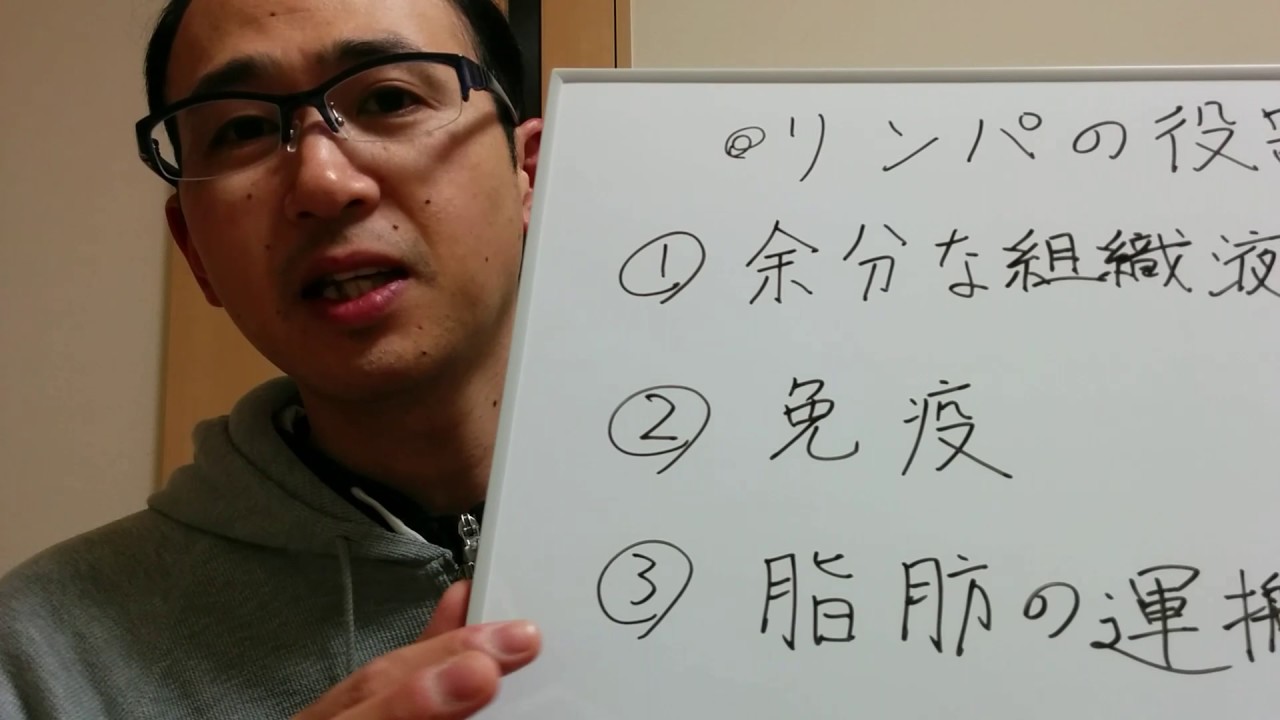 ◎リンパの役
① 余分な組織液
② 免疫
③ 脂肪の運